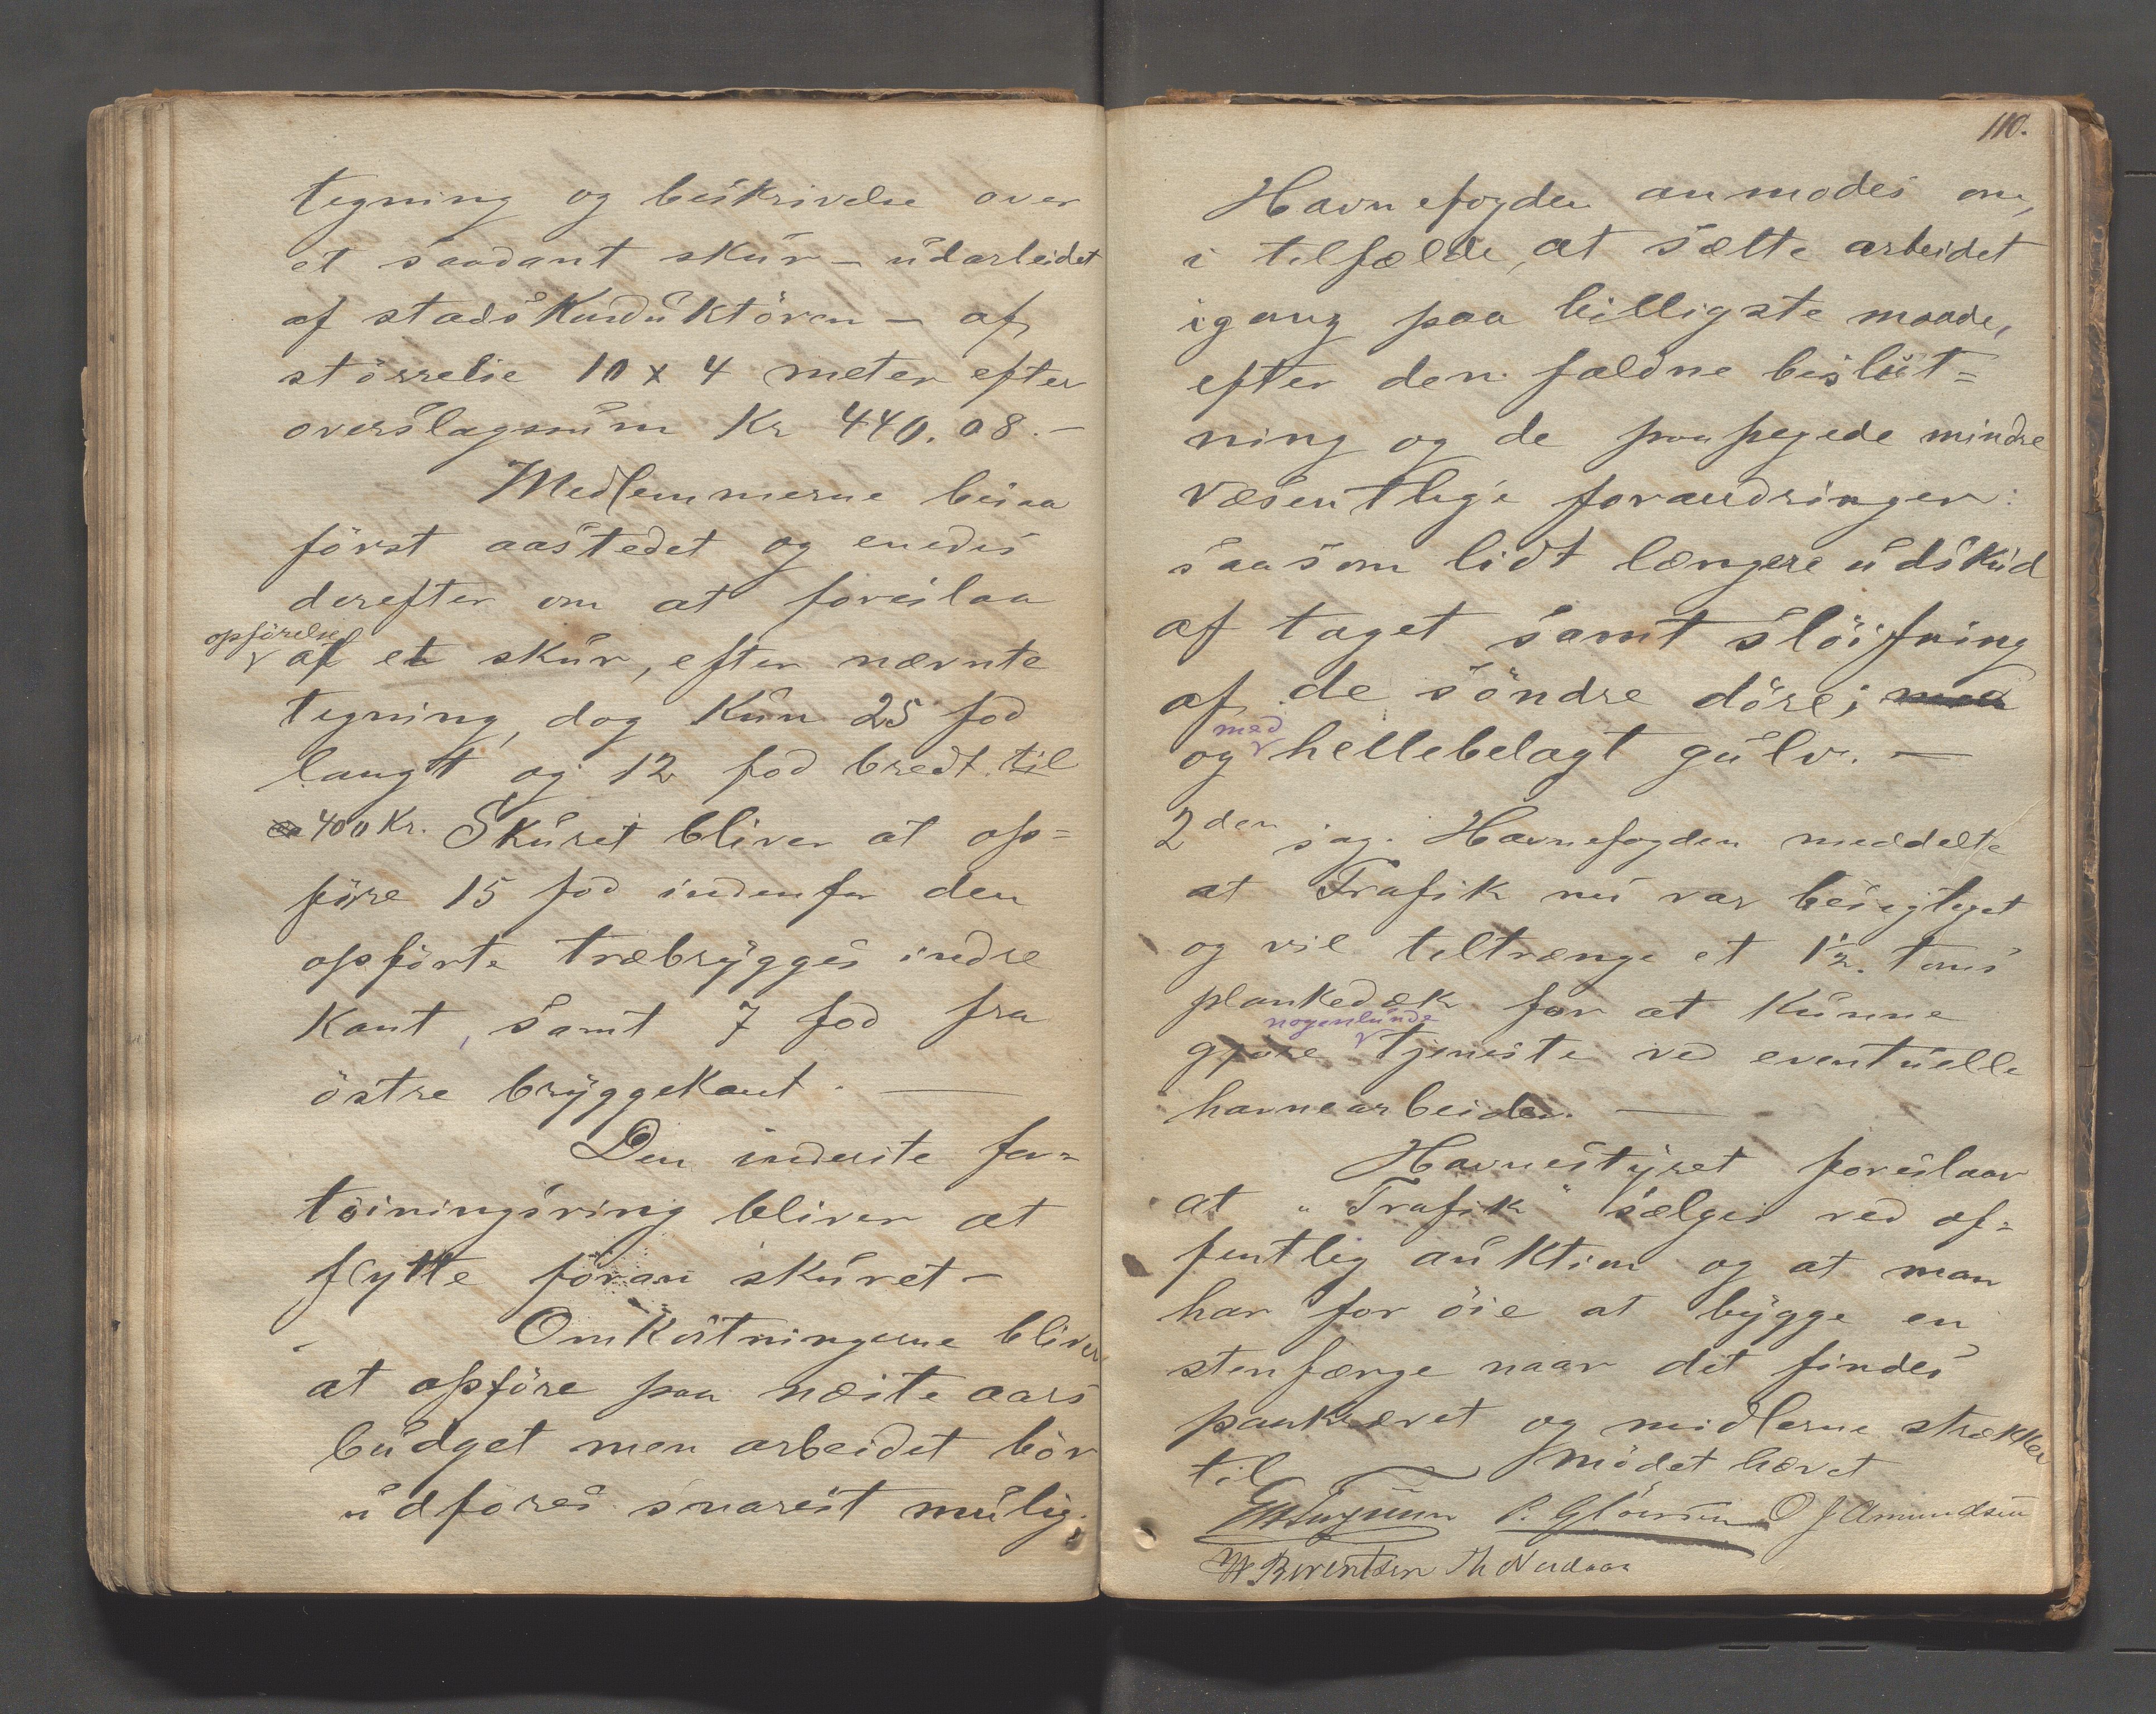 tegning og beskrivelse over
et saadant skur – udarbeidet
af stadskonduktören – af
störrelse 10 x 4 meter efter
overslagssum Kr 440.08.–
Medlemmerne besaa
först aastedet og enedes
derefter om at foreslaa
opförelse
af et skur, efter nævnte
tegning, dog kun 25 fod
langt og 12 fod bredt. til
ca 400 Kr. Skuret bliver at op=
före 15 fod indenfor den
opförte træbrygges indre
kant, samt 7 fod fra
östre bryggekant. —
Den inderste for=
töiningsring bliver at
flytte foran skuret –
Omkostningerne bliver
at opföre paa næste aars
budget men arbeidet bör
udföres snarest mulig.
110.
Havnefogden anmodes om,
i tilfælde, at sætte arbeidet
igang paa billigste maade,
efter den fældne beslut=
ning og de paapegede mindre
væsentlige forandringer:
saasom lidt længere udskud
af taget samt slöifning
af de söndre döre; med
med
og hellebelagt gulv. —
2den sag. Havnefogden meddelte
at Trafik nu var besigtiget
og vil tiltrænge et 1½ toms
plankedæk for at kunne
nogenlunde
gjøre tjeneste ved eventuelle
havnearbeider. —
Havnestyret foreslaar
at "Trafik" sælges ved of=
fentlig auktion og at man
har for öie at bygge en
stenfærge naar det findes
paakrævet og midlerne strækker
til — Mödet hævet
P. Glömmen O J Amundsen
W Berentsen Th Nordaas